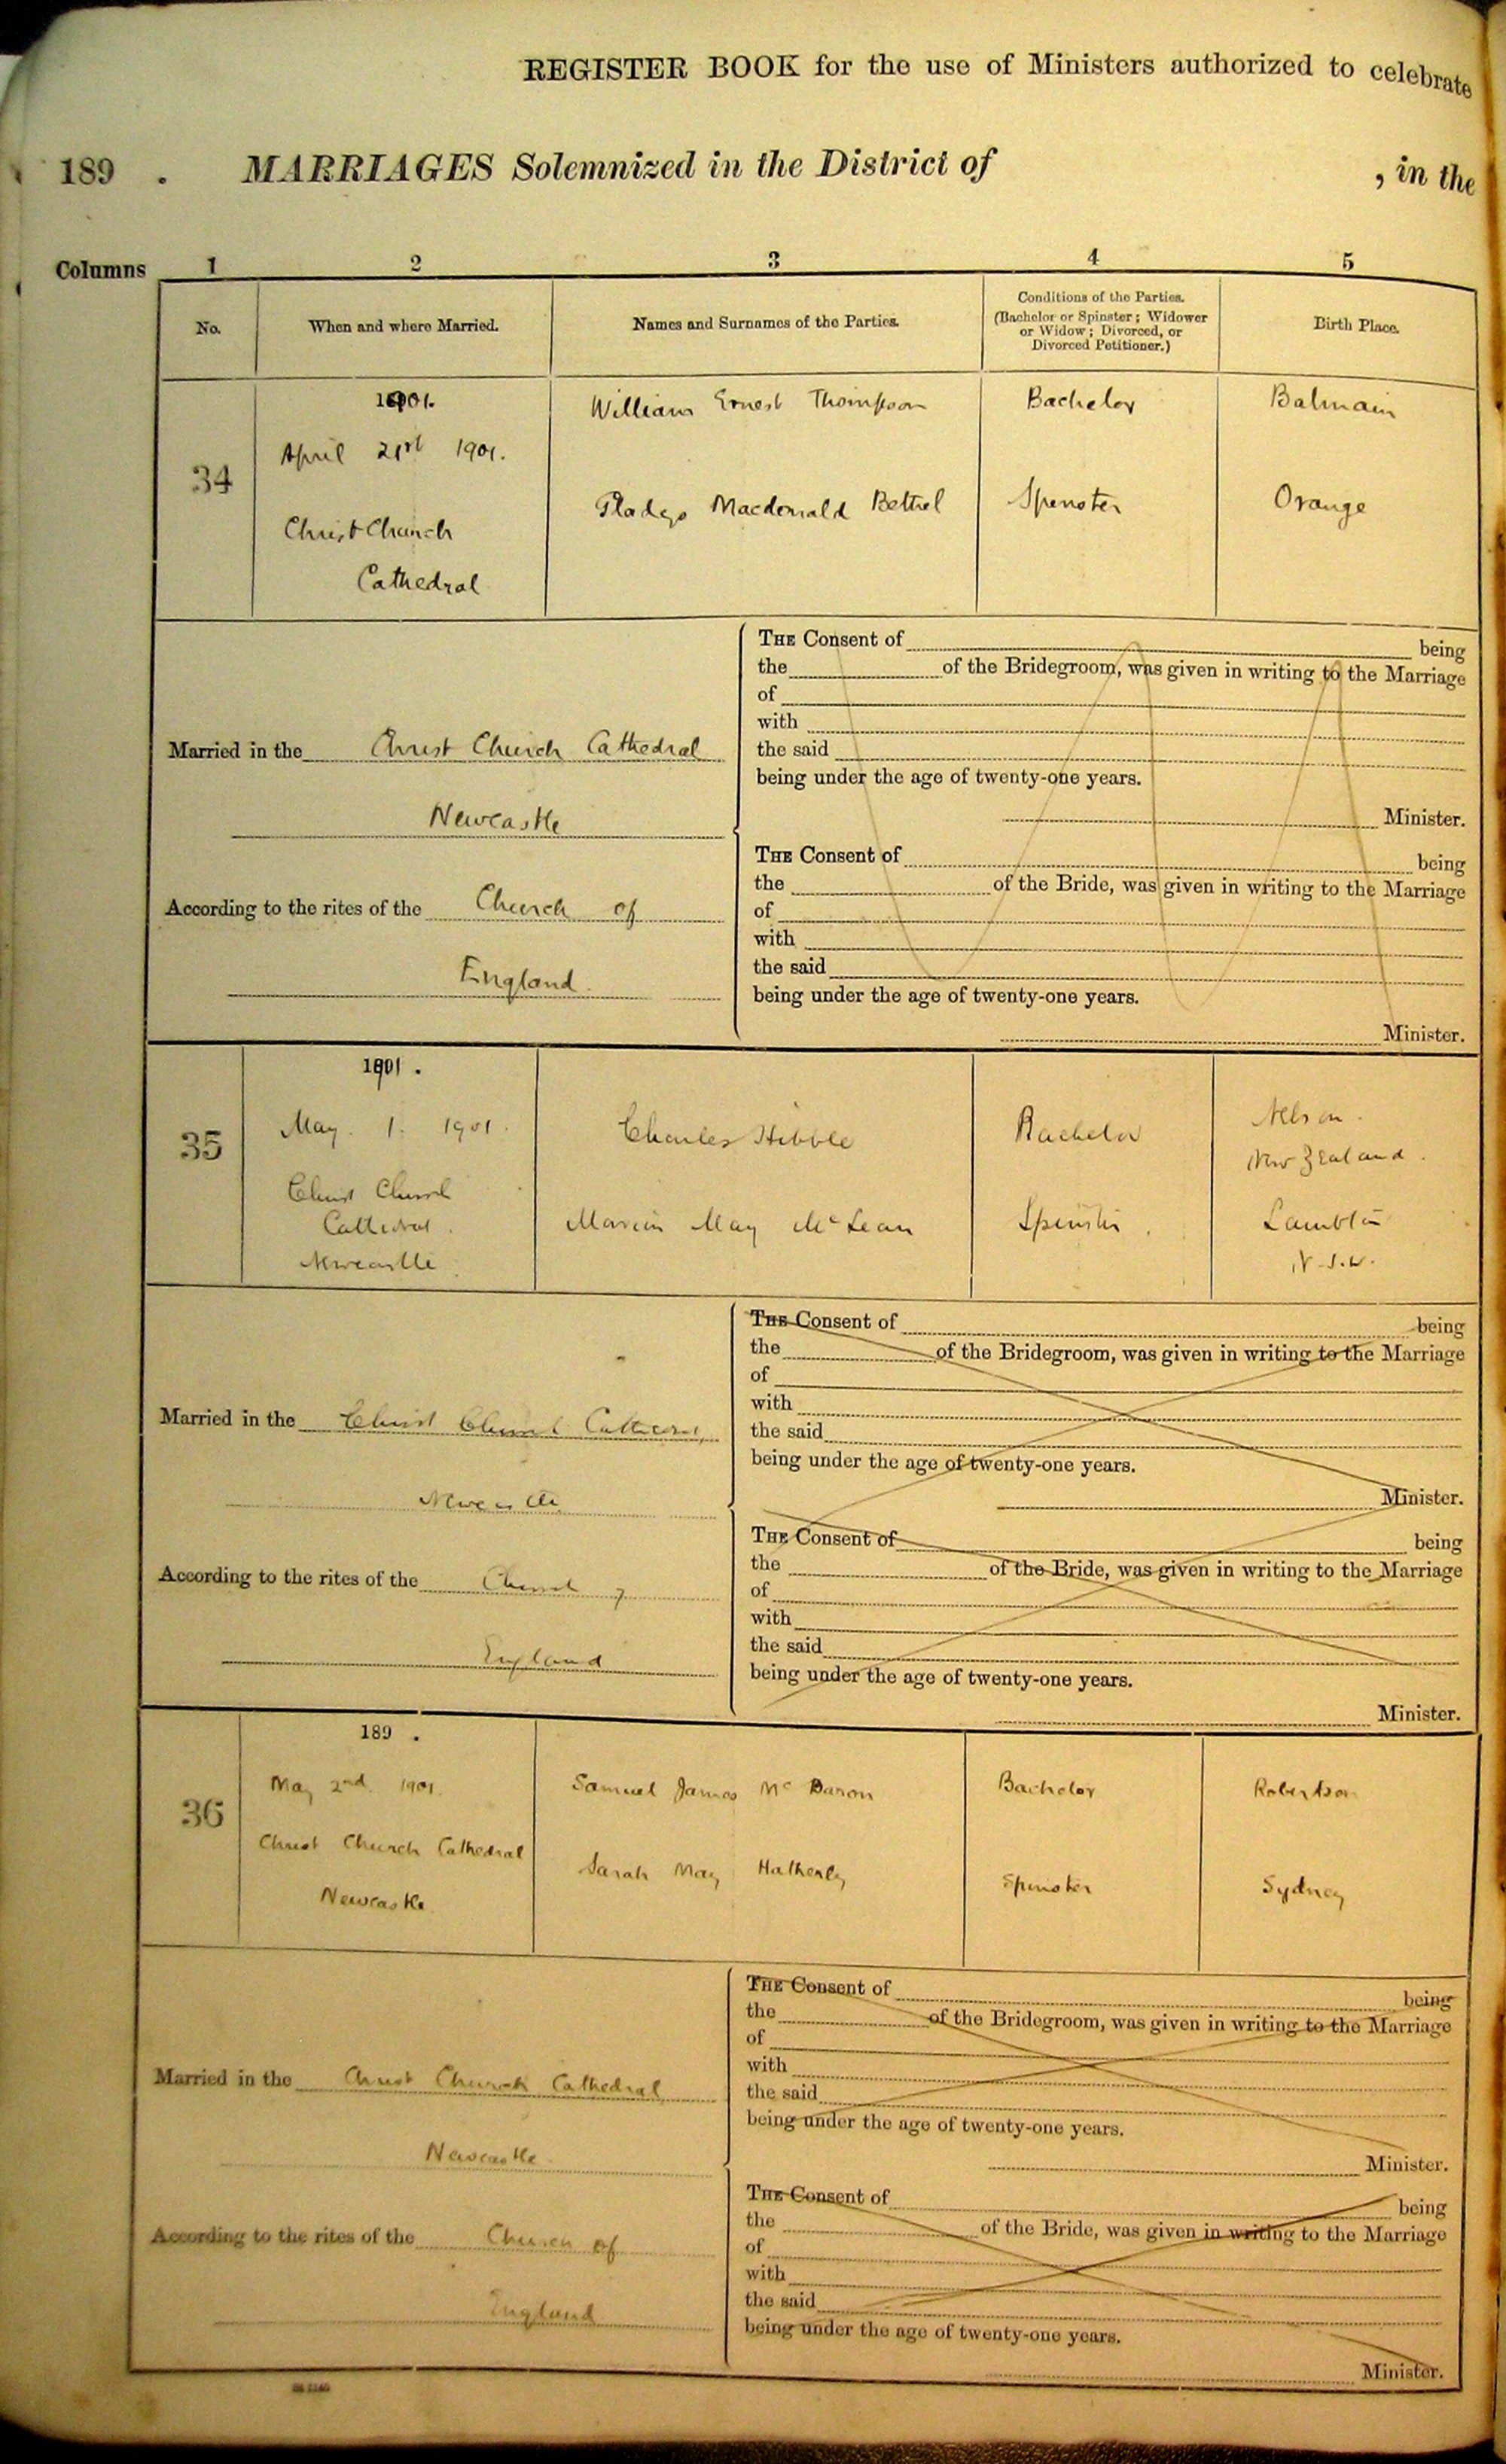 REGISTER BOOK for the use of Ministers authorized to celebrate
189 . MARRIAGES Solemnized in the District of , in the
Columns 1 2 3 4 5
No. When and where Married. Names and Surnames of the Parties. Conditions of the Parties. (Bachelor or Spinster; Widower or Widow; Divorced, or Divorced Petitioner.) Birth Place.
1901.
William Ernest Thompson Bachelor Balmain
April 21st 1901.
34
Gladys Macdonald Bethel Spinster Orange
Christ Church
Cathedral
THE Consent of being
the of the Bridegroom, was given in writing to the Marriage
of
with
Married in the Christ Church Cathedral
the said
being under the age of twenty-one years.
Newcastle
Minister.
THE Consent of being
the of the Bride, was given in writing to the Marriage
According to the rites of the Church of
of
with
the said
England
being under the age of twenty-one years.
Minister.
1901.
35
May 1. 1901. Charles Hibble Bachelor Nelson.
New Zealand.
Christ Church
Cathedral. May McLean Spinster. Lambton
Newcastle N.S.W.
THE Consent of being
the of the Bridegroom, was given in writing to the Marriage
of
with
Married in the Christ Church Cathedral,
the said
being under the age of twenty-one years.
Newcastle
Minister.
THE Consent of being
the of the Bride, was given in writing to the Marriage
According to the rites of the Church of
of
with
the said
England
being under the age of twenty-one years.
Minister.
189 .
36
May 2nd. 1901. Samuel James Mc Baron Bachelor Robertson
Christ Church Cathedral
Sarah May Hatherly Spinster Sydney
Newcastle
THE Consent of being
the of the Bridegroom, was given in writing to the Marriage
of
with
Married in the Christ Church Cathedral
the said
being under the age of twenty-one years.
Newcastle
Minister.
THE Consent of being
the of the Bride, was given in writing to the Marriage
According to the rites of the Church of
of
with
the said
England
being under the age of twenty-one years.
Minister.